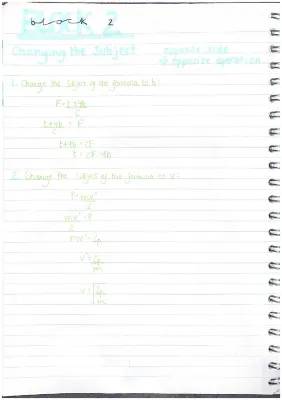 block 2
BLOCK 2
Changing the Subject
opposite side
→ opposite operation
1. Change the subject of the formula to t:
F = t+4b
c
t+4b = F
c
t+4b = cF
t = cF-4b
2. Change the subject of the formula to v:
P = mv²
2
mv² = P
2
mv² = 2P
v² = 2P
m
v = √2P
m